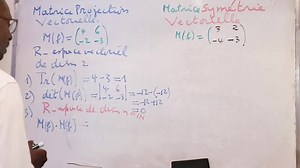 Matrice Projection
Vectorielle
M(f) = ( 4 6
-2 -3 )
R_espace vectoriel
de dim 2
1) Tr(M(f)) = 4 - 3 = 1
2) det(M(f)) = | 4 6
-2 -3 | = -12 - (-12)
= -12+12
= 0
3) R_espace de dim n
M(f) . M(f) =
Matrice Symetrie
Vectorielle
M(f) = ( 3 2
-4 -3 )